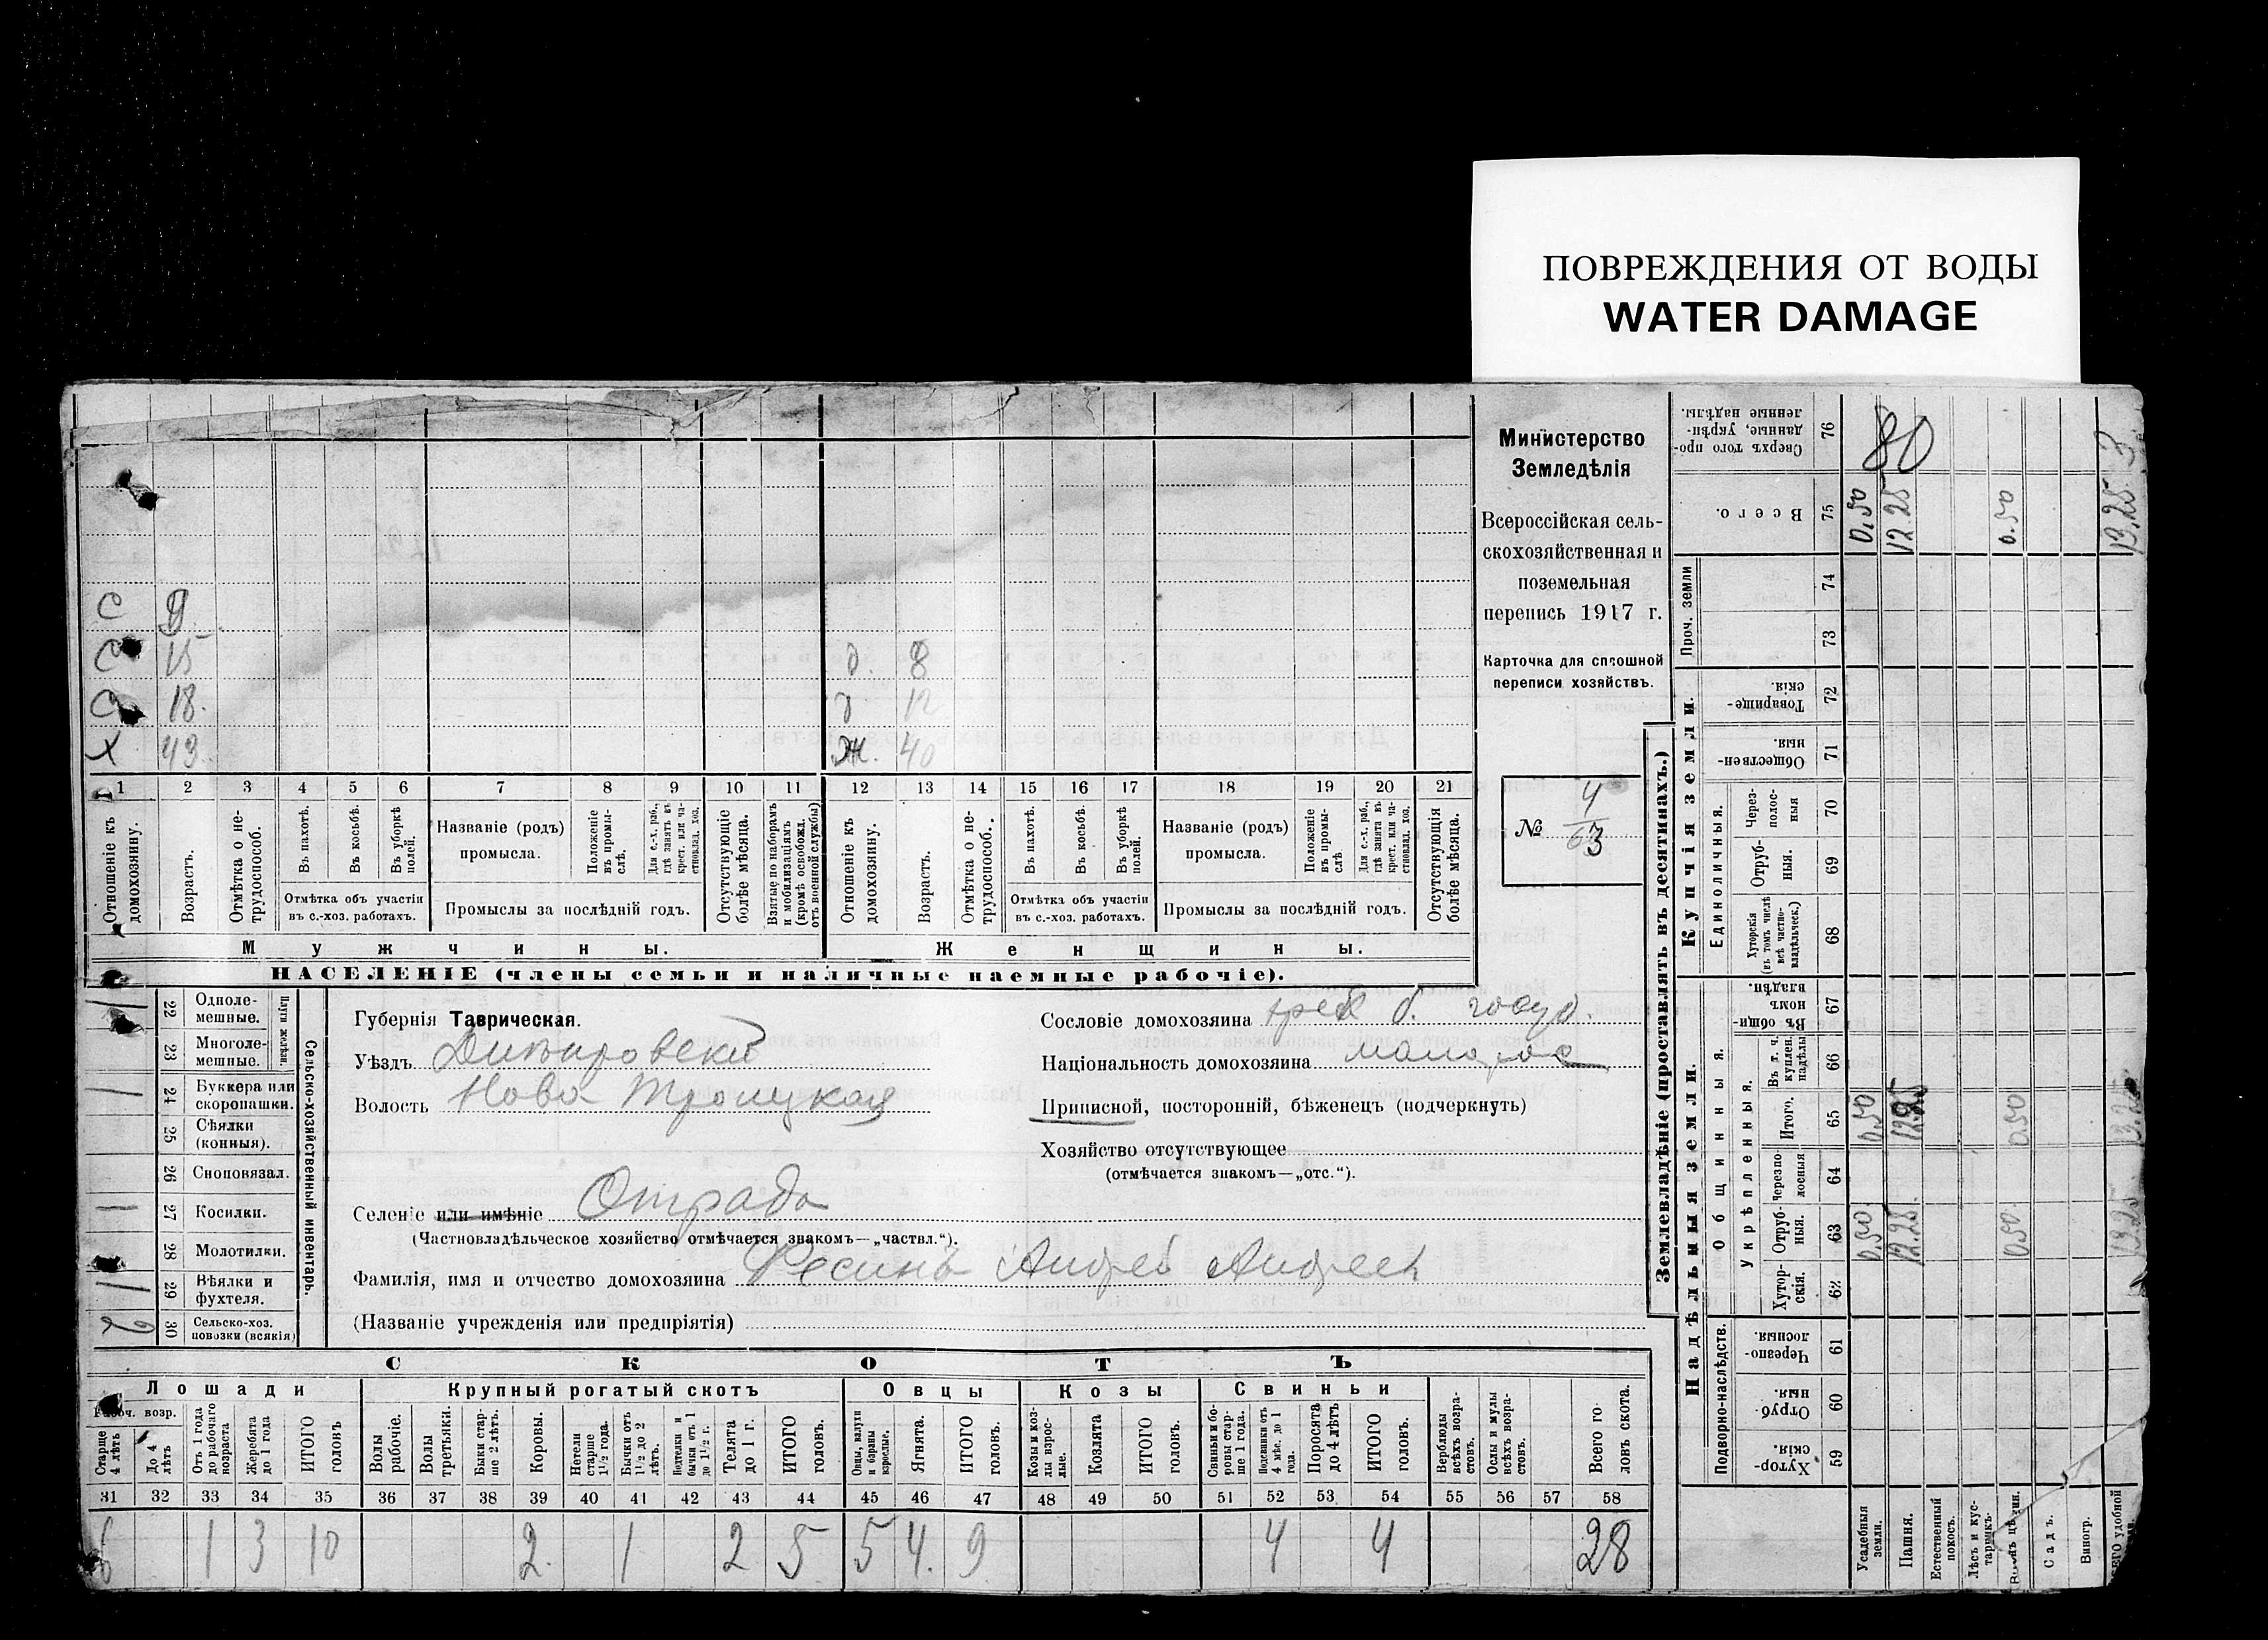 ПОВРЕЖДЕНИЯ ОТ ВОДЫ
WATER DAMAGE
Министерство
Земледѣлія
Всероссійская сель-
скохозяйственная и
поземельная
перепись 1917 г.
Карточка для сплошной
переписи хозяйствъ.
№ 4
63
С 9
С 15 д. 8
С 18. д 12
Х 49. Ж. 40
1 2 3 4 5 6 7 8 9 10 11 12 13 14 15 16 17 18 19 20 21
Отношеніе къ домохозяину.
Возрастъ.
Отмѣтка о не-трудоспособ.
Въ пахотѣ.
Въ косьбѣ.
Въ уборкѣ полей.
Отмѣтка объ участіи
въ с.-хоз. работахъ.
Названіе (родъ)
промысла.
Положеніе въ промы-слѣ.
Для с.-х. раб., гдѣ занятъ въ крест. или ча-стновлад. хоз.
Промыслы за послѣдній годъ.
Отсутствующіе болѣе мѣсяца.
Взятые по наборамъ и мобилизаціямъ (кромѣ освобожд. отъ военной службы)
Отношеніе къ домохозяину.
Возрастъ.
Отмѣтка о не-трудоспособ..
Въ пахотѣ.
Въ косьбѣ.
Въ уборкѣ полей.
Отмѣтка объ участіи
въ с.-хоз. работахъ.
Названіе (родъ)
промысла.
Положеніе въ промы-слѣ
Для с.-х. раб., гдѣ занята въ крест. или ча-стновлад. хоз.
Промыслы за послѣдній годъ.
Отсутствующія болѣе мѣсяца.
Мужчины. Женщины.
НАСЕЛЕНІЕ (члены семьи и наличные наемные рабочіе).
Сельско-хозяйственный инвентарь.
Плуги желѣзн.
1 22 Одноле-мешные.
23 Многоле-мешные.
1 24 Буккера или скоропашки.
25 Сѣялки (конныя).
26 Сноповязал.
1 27 Косилки.
28 Молотилки.
1 29 Вѣялки и фухтеля.
2 30 Сельско-хоз. повозки (всякія)
Губернія Таврическая.
Уѣздъ Днѣпровскій
Волость Ново Троицкая
Селеніе или имѣніе Отрада
(Частновладѣльческое хозяйство отмѣчается знакомъ—„частвл.“).
Фамилія, имя и отчество домохозяина Фесинъ Андрей Андреев
(Названіе учрежденія или предпріятія)
Сословіе домохозяина крес б. госуд.
Національность домохозяина малорос
Приписной, посторонній, бѣженецъ (подчеркнуть)
Хозяйство отсутствующее
(отмѣчается знакомъ—„отс.“).
СКОТЪ
Лошади Крупный рогатый скотъ Овцы Козы Свиньи
Рабоч. возр.
Старше 4 лѣтъ
До 4 лѣтъ
Отъ 1 года до рабочаго возраста
Жеребята до 1 года
ИТОГО головъ
Волы рабочіе.
Волы третьяки.
Быки стар-ше 2 лѣтъ.
Коровы.
Нетели старше 1 1/2 года.
Бычки отъ 1 1/2 до 2 лѣтъ.
Подтелки и бычки отъ 1 до 1 1/2 г.
Телята до 1 г.
ИТОГО головъ.
Овцы, валухи и бараны взрослые.
Ягнята.
ИТОГО головъ.
Козы и коз-лы взрос-лые.
Козлята
ИТОГО головъ.
Свиньи и бо-ровы стар-ше 1 года.
Подсвинки отъ 4 мѣс. до 1 года.
Поросята до 4 лѣтъ
ИТОГО головъ.
Верблюды всѣхъ возра-стовъ.
Ослы и мулы всѣхъ возра-стовъ.
Всего го-ловъ скота.
31 32 33 34 35 36 37 38 39 40 41 42 43 44 45 46 47 48 49 50 51 52 53 54 55 56 57 58
6 1 3 10 2. 1 2 5 5 4. 9 4 4 28
Землевладѣніе (проставлять въ десятинахъ.)
Надѣльныя земли. Купчія земли.
Подворно-наслѣдств.
Общинныя.
Укрѣпленныя.
Единоличныя.
Проч. земли
Сверхъ того про-данные, укрѣп-ленные надѣлы. 76 80 3
Всего. 75 0,50 12.25 0.50 13,25
74
73
Товарище-скія. 72
Обществен-ныя 71
Черезполос-ныя 70
Отруб-ныя. 69
Хуторскія (въ томъ числѣ всѣ частно-владѣльческ.) 68
Въ общин-номъ владѣн. 67
Въ т. ч. куплен. надѣлы 66
Итого. 65 0.50 12.25 0.50 13.25
Черезпо-лосныя 64
Отруб-ныя. 63 0.50 12.25. 0.50. 13.25
Хутор-скія. 62
Черезпо-лосныя 61
Отруб-ныя. 60
Хутор-скія. 59
Усадебныя земли.
Пашня.
Естественный покосъ.
Лѣсъ и кус-тарникъ.
Садъ.
Виногр.
удобной